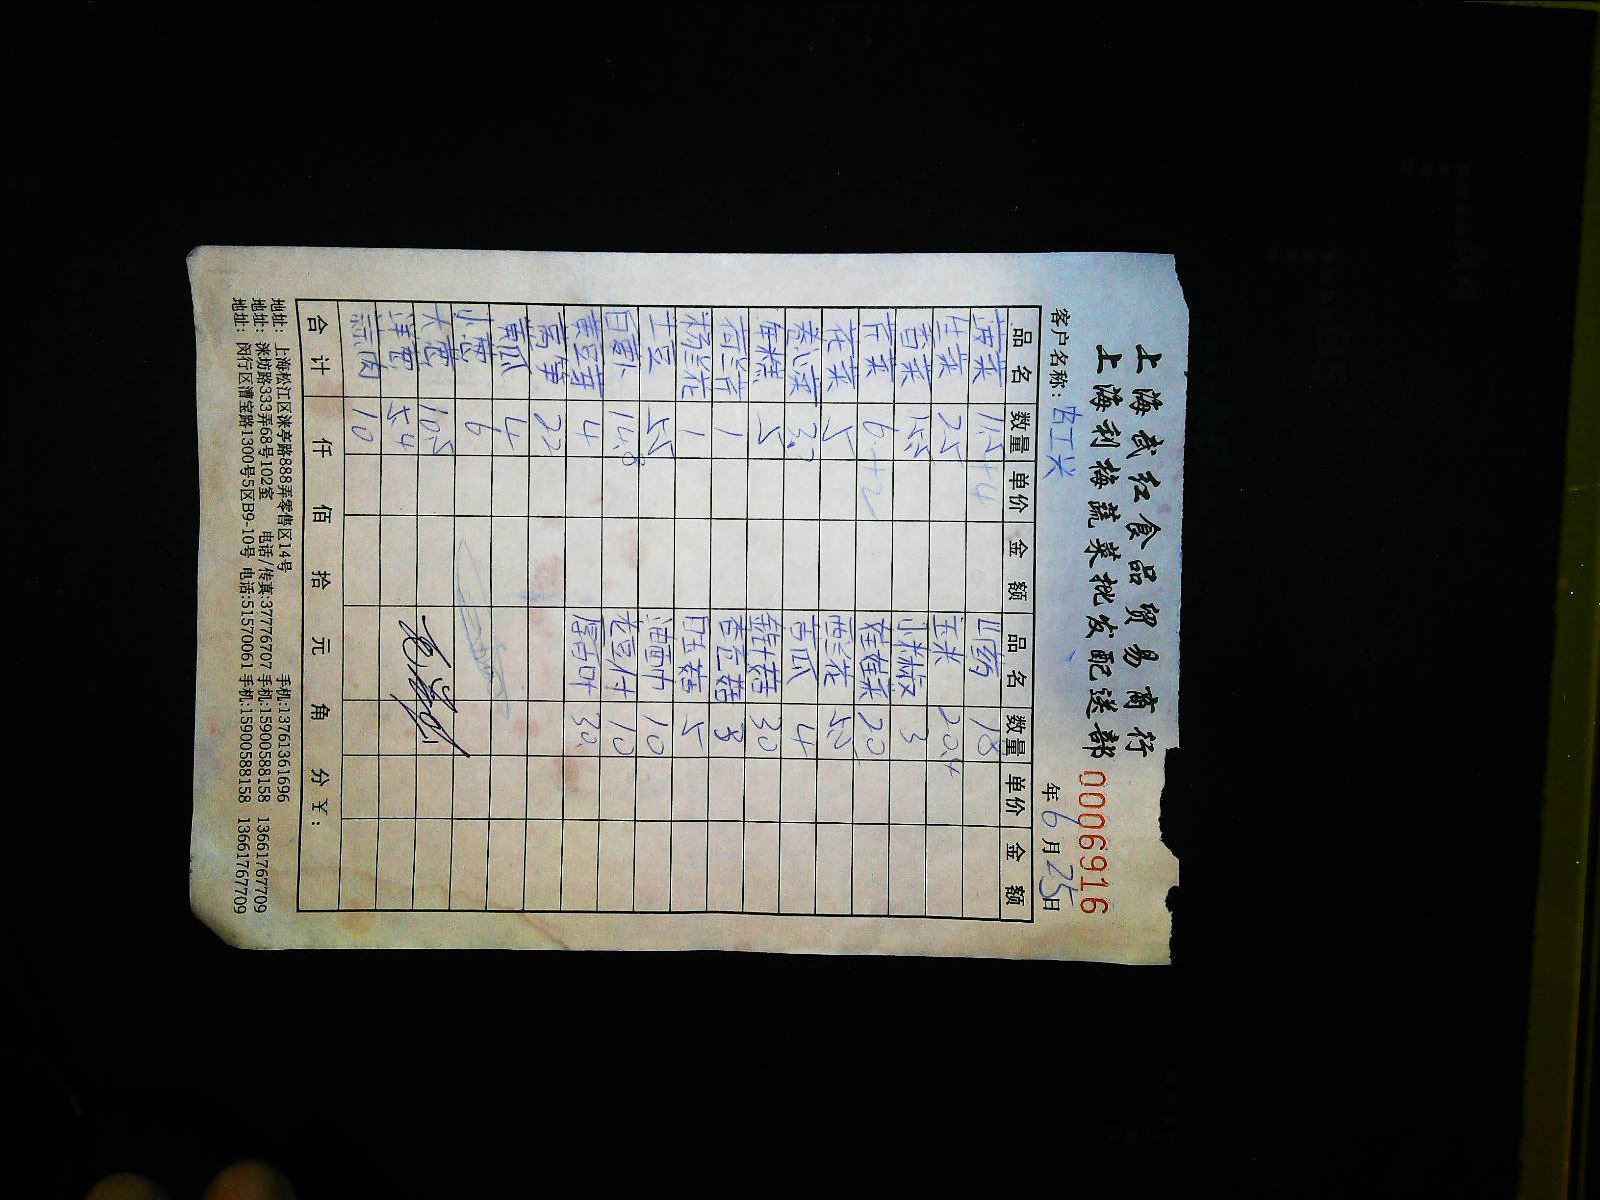 上海武红食品贸易商行
上海利梅蔬菜批发配送部
00069916
客户名称: 年 6 月 25 日
品名 数量 单价 金额 品名 数量 单价 金额
菠菜 山药 18
生菜 25 玉米 20.4
香菜 小米椒 3
芹菜 6+2 娃娃菜 20
花菜 5 西兰花
卷心菜 3.2 苦瓜 4
年糕 5 金针菇 30
荷兰芹 1 杏鲍菇 8
杨兰花 1 5
土豆 油面巾 10
白萝卜 14.8 老豆付 10
黄豆芽 4 厚百叶 30
莴笋 22
4
小葱 6
大葱 10.5
洋葱 54
蒜肉 10
合计 仟 佰 拾 元 角 分 ¥:
地址: 上海松江区涞亭路888弄零售区14号 手机:13761361696
地址: 涞坊路333弄68号102室 电话/传真:37776707 手机:15900588158 13661767709
地址: 闵行区漕宝路1300号5区B9-10号 电话:51570061 手机:15900588158 13661767709